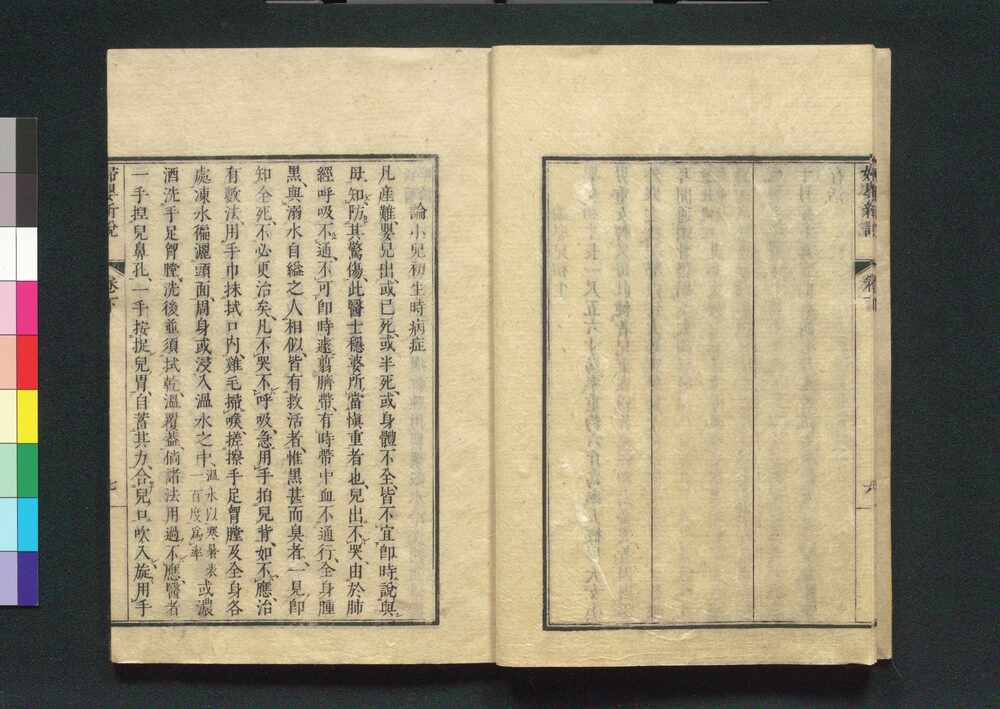 論小兒初生時病症
凡產難嬰兒出、或已死、或半死、或身體不全、皆不宜即時說與
母知、防其驚傷、此醫士穩婆所當慎重者也、兒出不哭、由於肺
經呼吸不通、不可即時速翦臍帶、有時帶中血不通行、全身腫
黑、與溺水自縊之人相似、皆有救活者、惟黑甚而臭者、一見即
知全死、不必更治矣、凡不哭不呼吸、急用手拍兒背、如不應、治
有數法、用手巾抹拭口內、雞毛掃喉、搓擦手足胷膛及全身各
處、凍水徧灑頭面周身、或浸入溫水之中、溫水以寒暑表一百度爲率或濃
酒洗手足胷膛、洗後並須拭乾、溫覆蓋、倘諸法用過不應、醫者
一手揑兒鼻孔、一手按捉兒胃、自蓄其力、合兒口吹入、旋用手
婦嬰新說
卷下
七